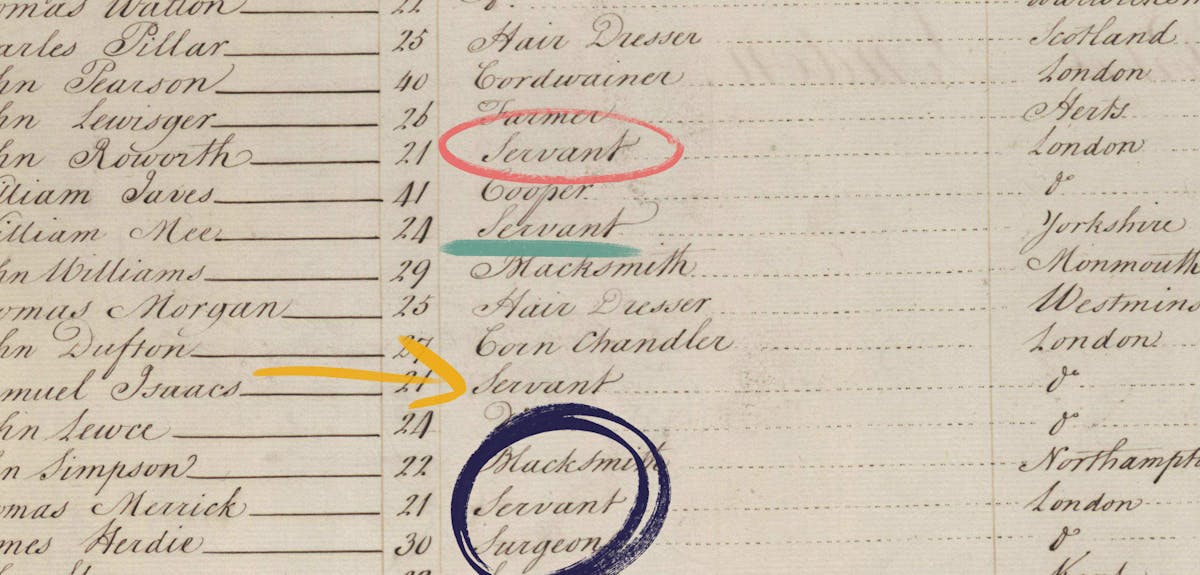 omas Watton 22 Do Warwickshire
arles Pillar 25 Hair Dresser Scotland
hn Pearson 40 Cordwainer London
hn Lewisger 26 Farmer Herts
hn Roworth 21 Servant London
illiam Javes 41 Cooper Do
illiam Mee 24 Servant Yorkshire
hn Williams 29 Blacksmith Monmouth
omas Morgan 25 Hair Dresser Westmins
hn Dufton 27 Corn Chandler London
muel Isaacs 21 Servant Do
hn Lewce 24 Do
n Simpson 22 Blacksmith Northampt
omas Merrick 21 Servant London
mes Herdie 30 Surgeon Do
Kent